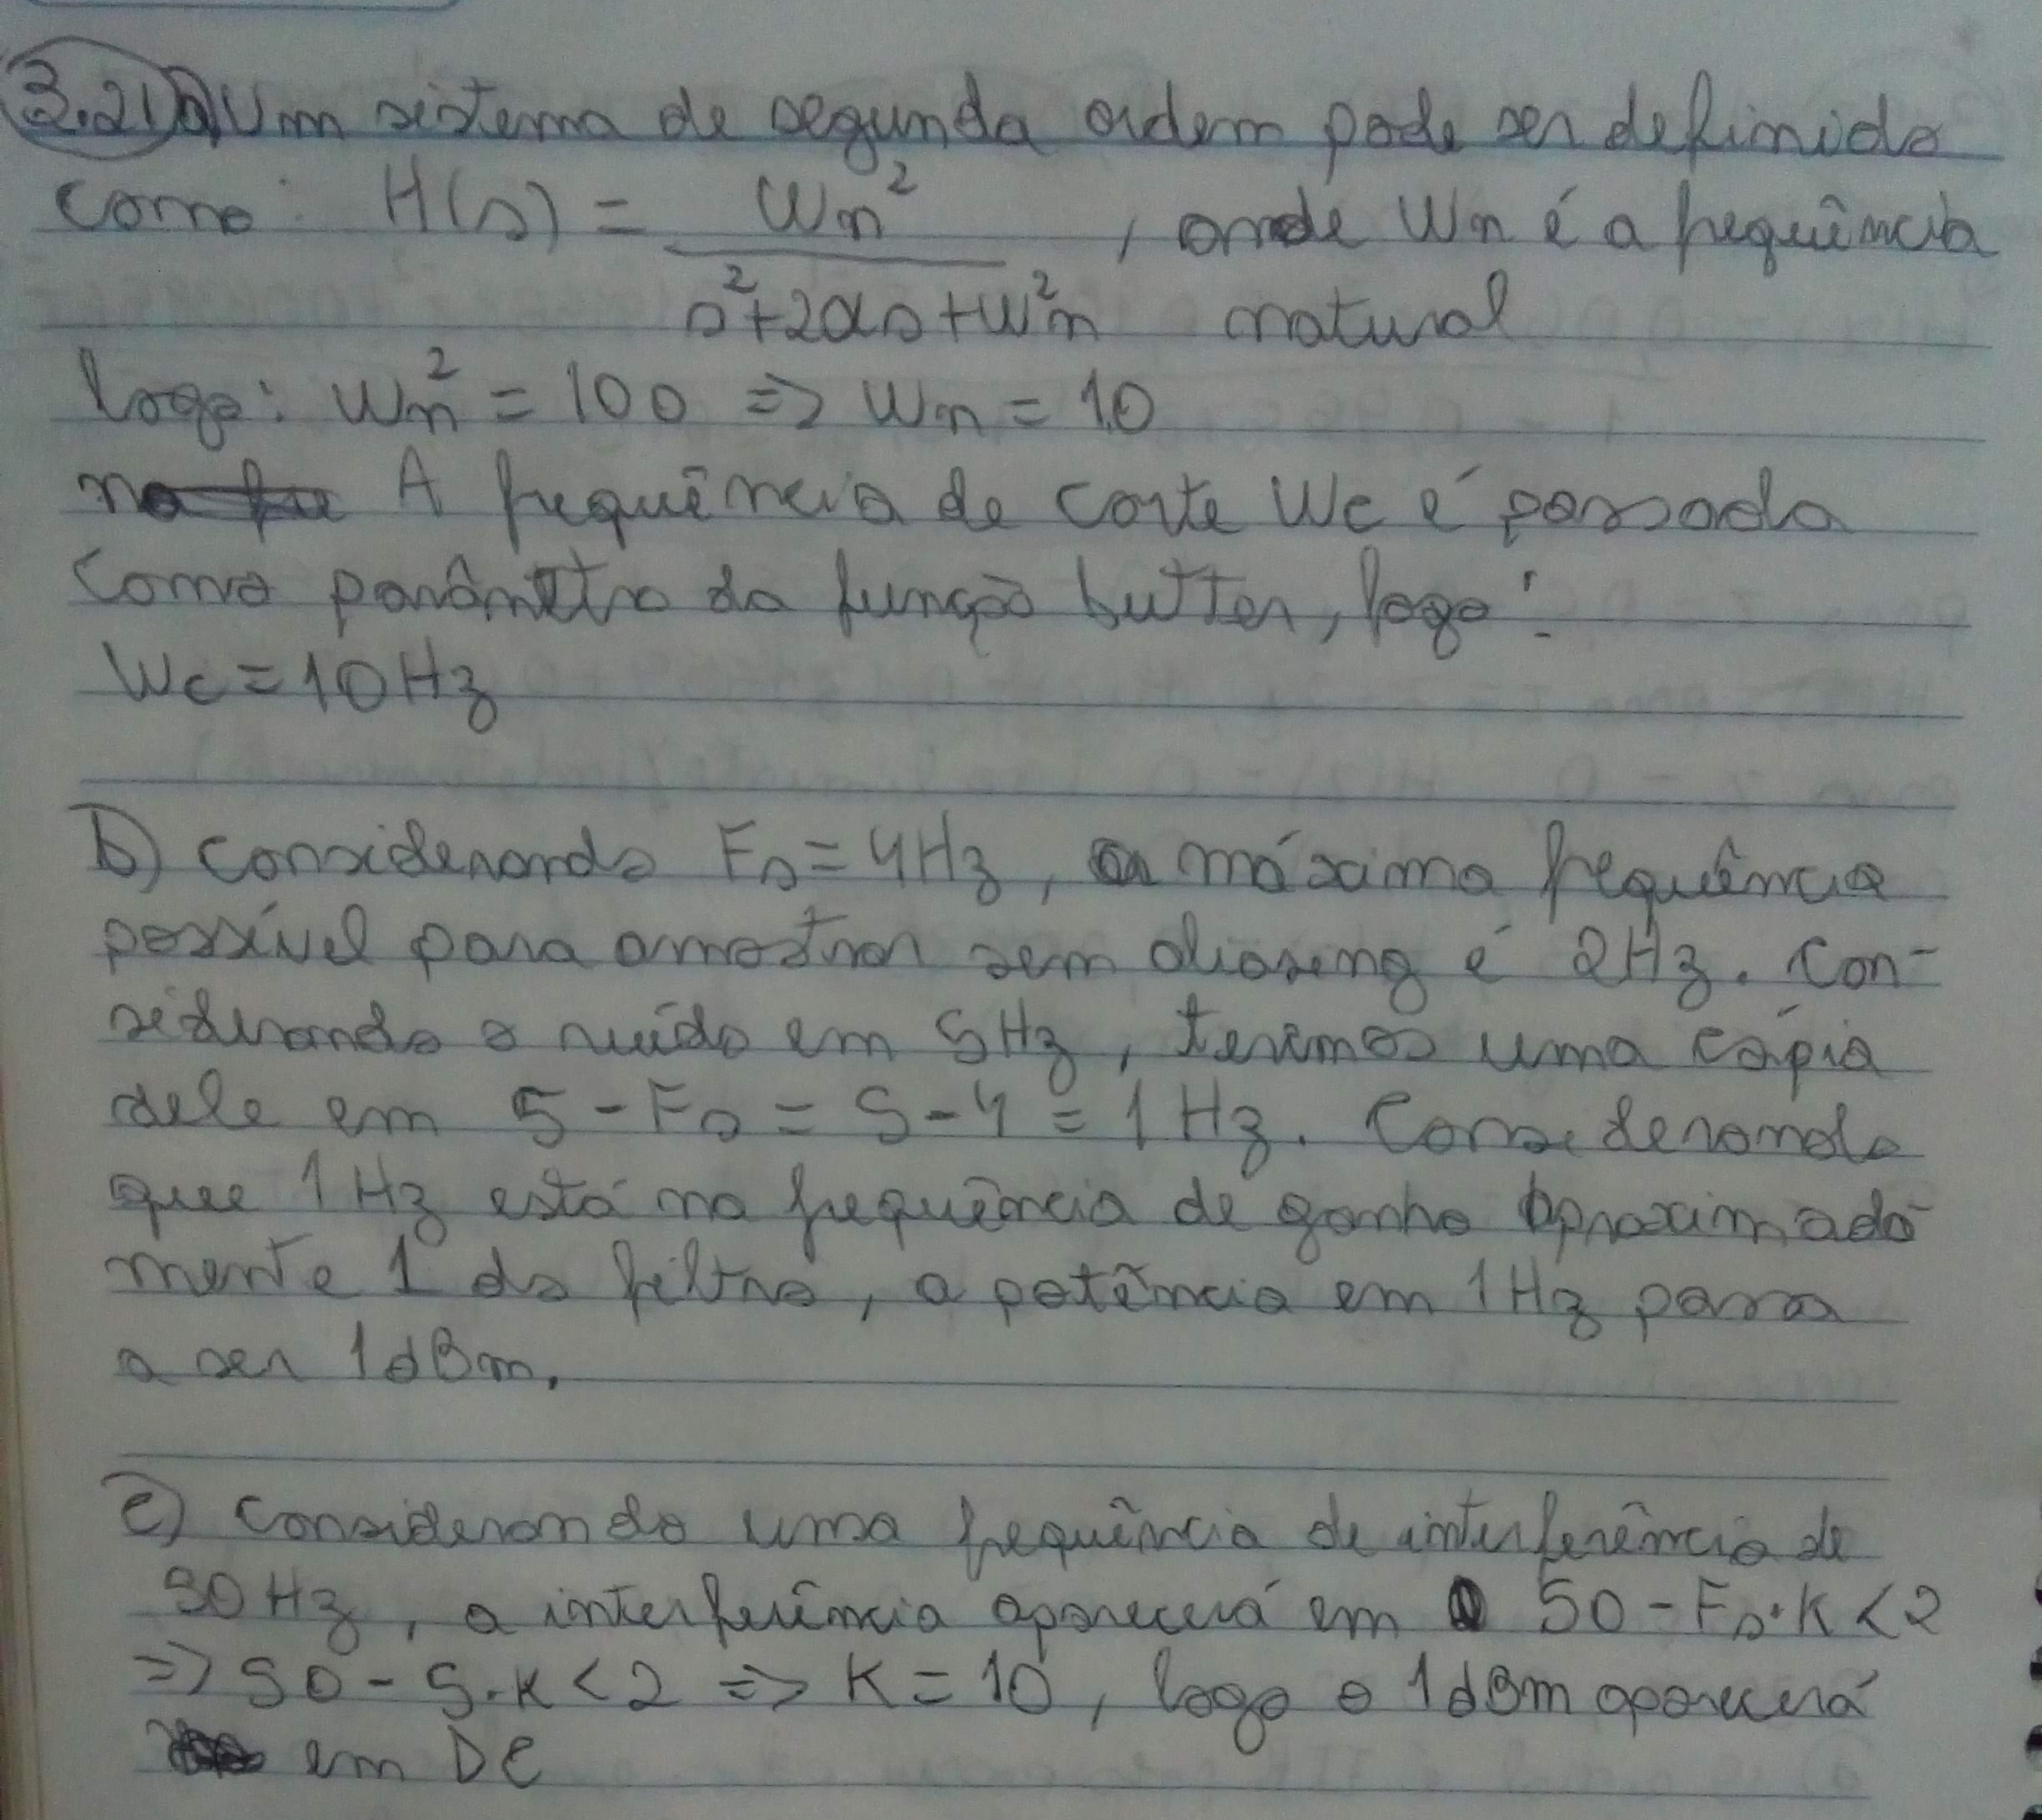 3.21 a) Um sistema de segunda ordem pode ser definido
como: H(s) = Wn² / (s²+2αs+W²n), onde Wn é a frequência
natural
logo: Wn² = 100 => Wn = 10
A frequência de corte Wc é passada
como parâmetro da função butter, logo:
Wc = 10Hz
b) Considerando Fs = 4Hz, a máxima frequência
possível para amostrar sem aliaseng é 2Hz. Con-
siderando o ruído em 5Hz, teremos uma cópia
dele em 5 - Fs = 5-4 = 1Hz. Considerando
que 1Hz está na frequência de ganho aproximada-
mente 1 do filtro, a potência em 1Hz passa
a ser 1dBm.
c) Considerando uma frequência de interferência de
50Hz, a interferência aparecerá em 50 - Fs·K < 2
=> 50 - 5·K < 2 => K = 10, logo o 1dBm aparecerá
em DC